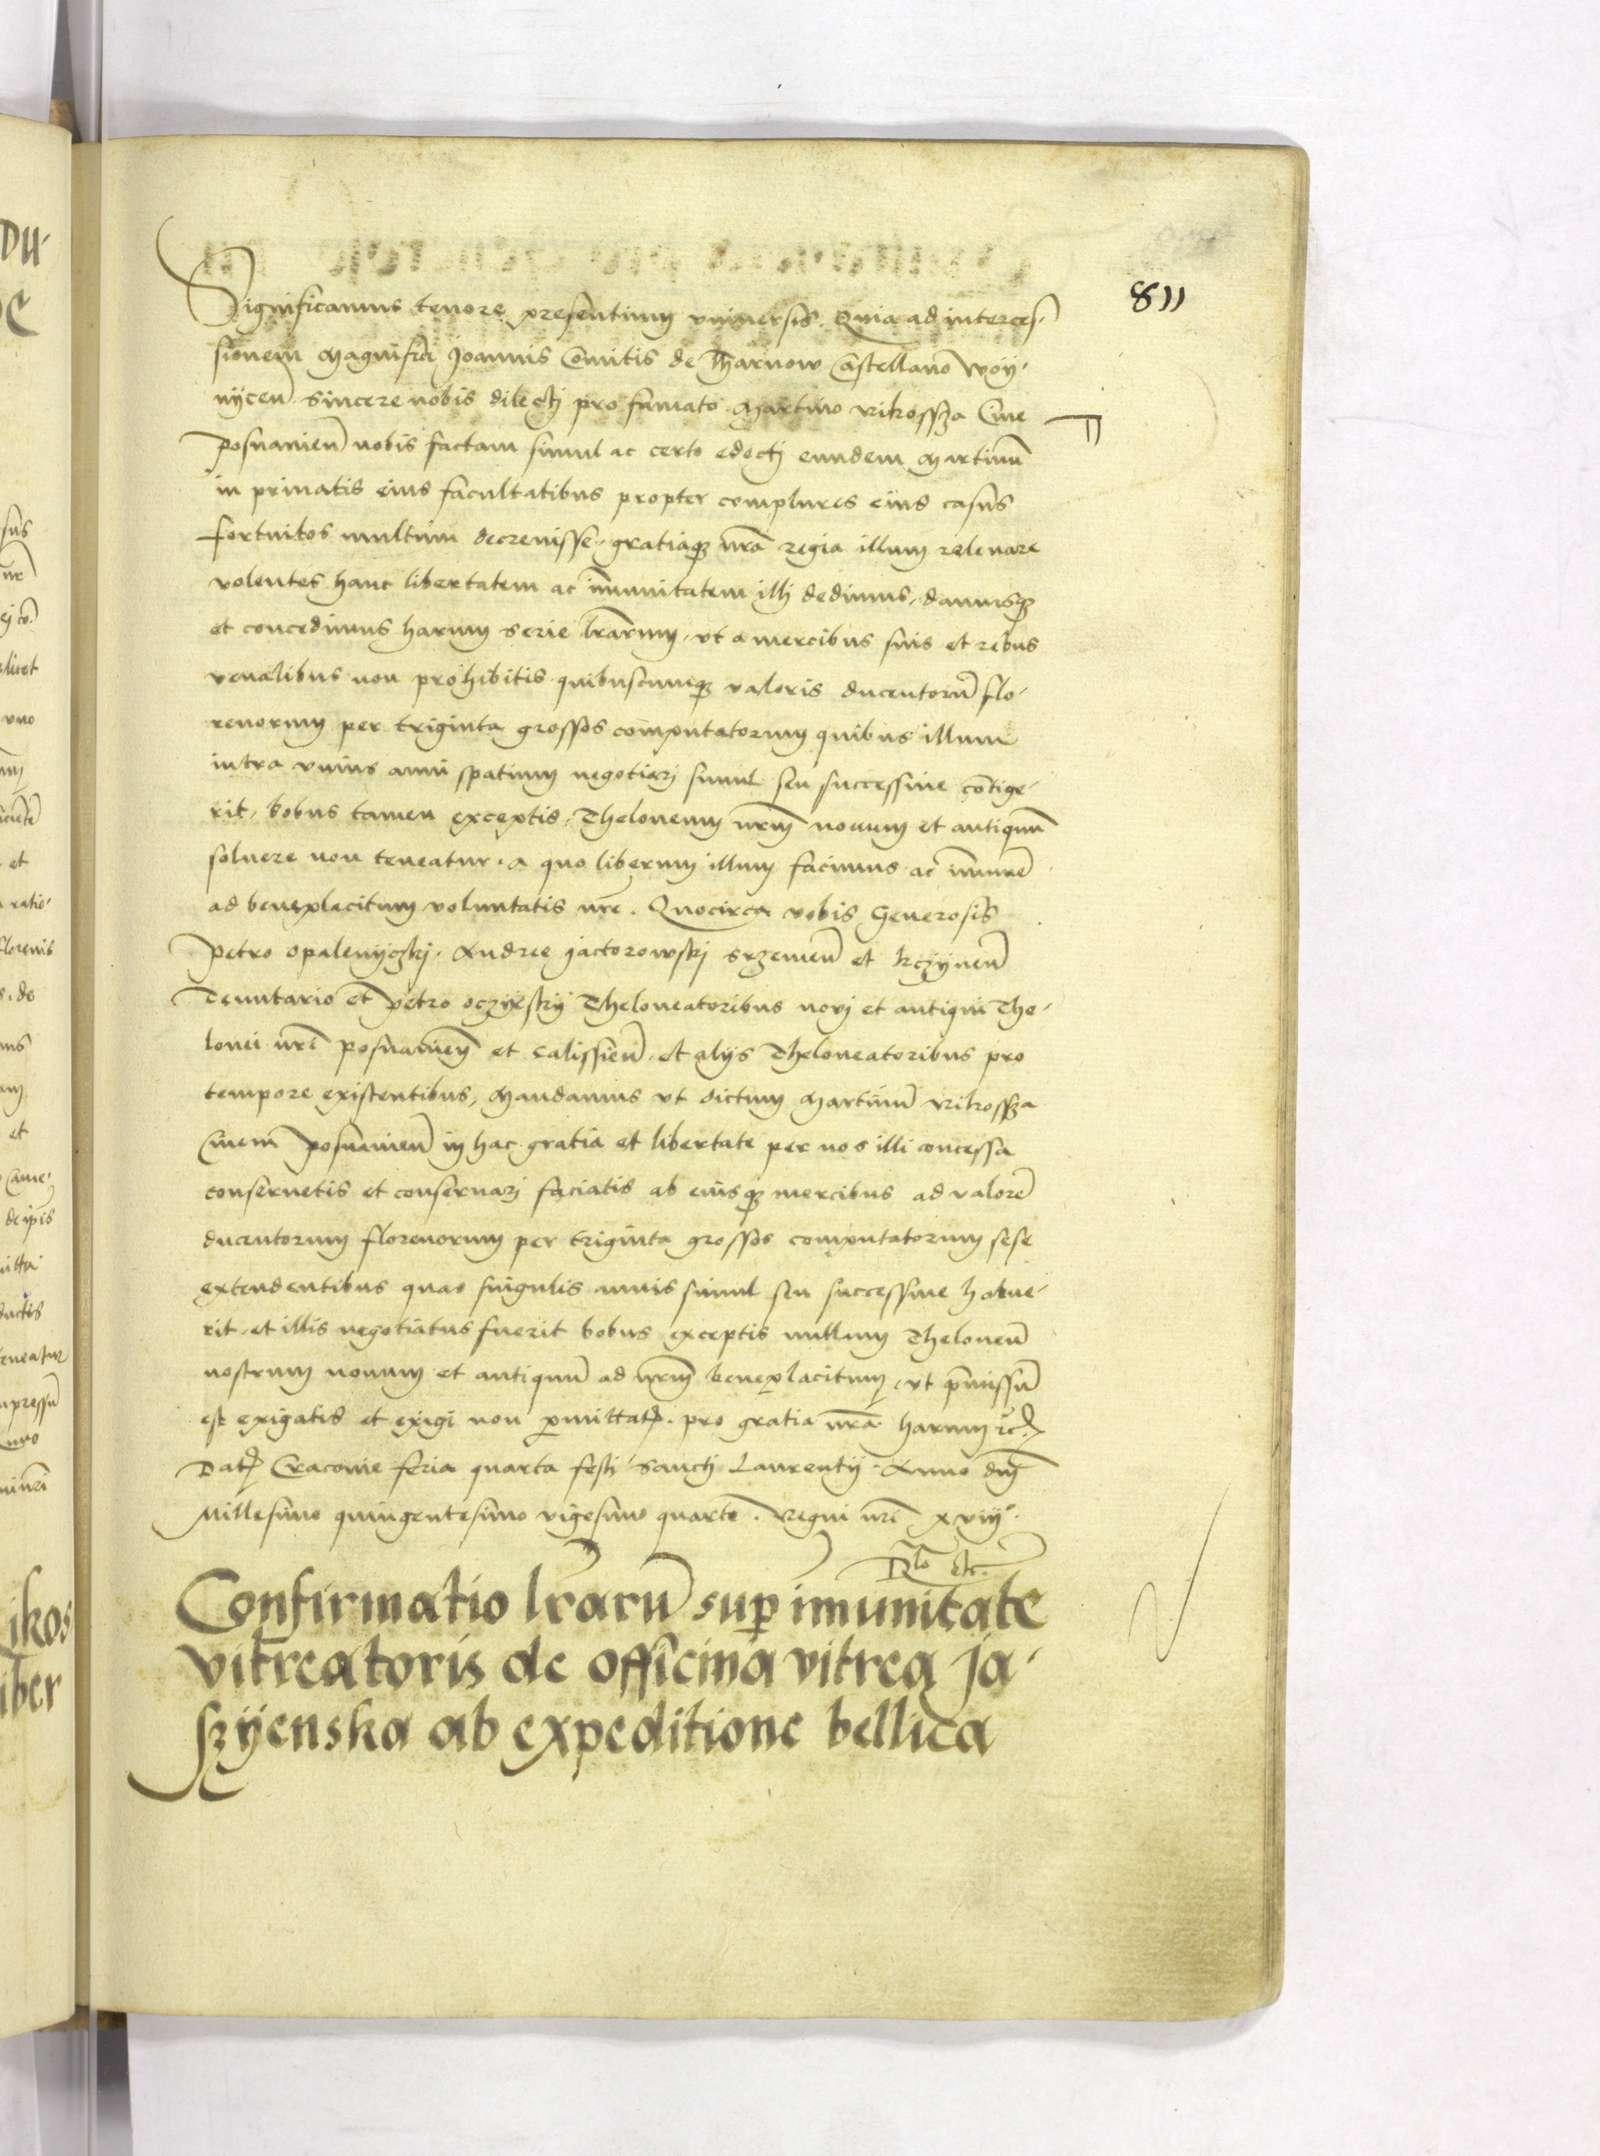 811
Significamus tenore presentium vniuersis. Quia ad interces-
sionem Magnifici Joannis Comitis de Tharnow Castellano woy-
nÿcen̄ sincere nobis dilecti pro famato Martino vikossza Ciue
posnanien̄ nobis factam simul ac certo edocti eundem Martinū
in priuatis eius facultatibus propter complures eius casus
fortuitos multum decreuisse, gratiaqȝ nrā regia illum releuare
volentes hanc libertatem ac īmunitatem illi dedimus, damusqȝ
et concedimus harum serie lrārum, vt a mercibus suis et rebus
venalibus non prohibitis quibuscumqȝ valoris ducentorū flo-
renorum per triginta grossos computatorum quibus illum
intra vnius anni spatium negotiari simul seu successiue cōtige-
rit, bobus tamen exceptis, Theloneum nrm̄ nouum et antiquū
soluere non teneatur. a quo liberum illum facimus ac īmunē
ad beneplacitum voluntatis nrē. Quocirca vobis Generosis
Petro opalenÿczkj. Andree jactorowskj srzemen̄ et kczÿnen̄
Tenutario et petro oczÿeskÿ Theloneatoribus novj et antiqui The-
lonei nrī posnanien̄ et Calissien̄. et alijs Theloneatoribus pro
tempore existentibus, Mandamus vt dictum Martinū vikossza
Ciuem posnanien̄ in hac gratia et libertate per nos illi concessa
conseruetis et conseruari faciatis ab eiusqȝ mercibus ad valorē
ducentorum florenorum per triginta grossos computatorum sese
extendentibus quas singulis annis simul seu successiue habue-
rit, et illis negotiatus fuerit bobus exceptis nullum Theloneū
nostrum nouum et antiquū ad nrm̄ beneplacitum, vt p̄missū
est exigatis et exigi non p̄mittatȝ. pro gratia nrā harum etc.
Datȝ Cracouie feria quarta festi Sancti Laurentij. Anno dnj̄
Millesimo quingentesimo vigesimo quarto. Regni nrī xviij°
Rlo etc.
Confirmatio lrārū sup īmunitate
vitreatoris de officina vitrea Ja-
szÿenska ab expeditione bellica